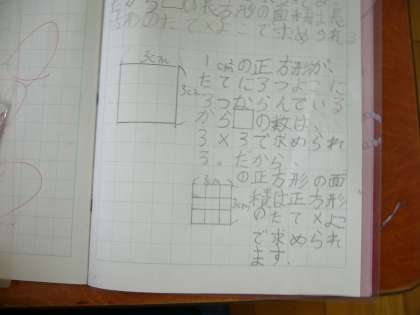 長方形の面積は長
方形のたて×よこで求められる
3cm
3cm
1cmの正方形が、
たてに3つよこに
3つならんでいる
から□の数は、
3×3で求められ
る。だから、
の正方形の面
積は正方形
のたて×よこ
で求められ
ます。
3cm
3cm